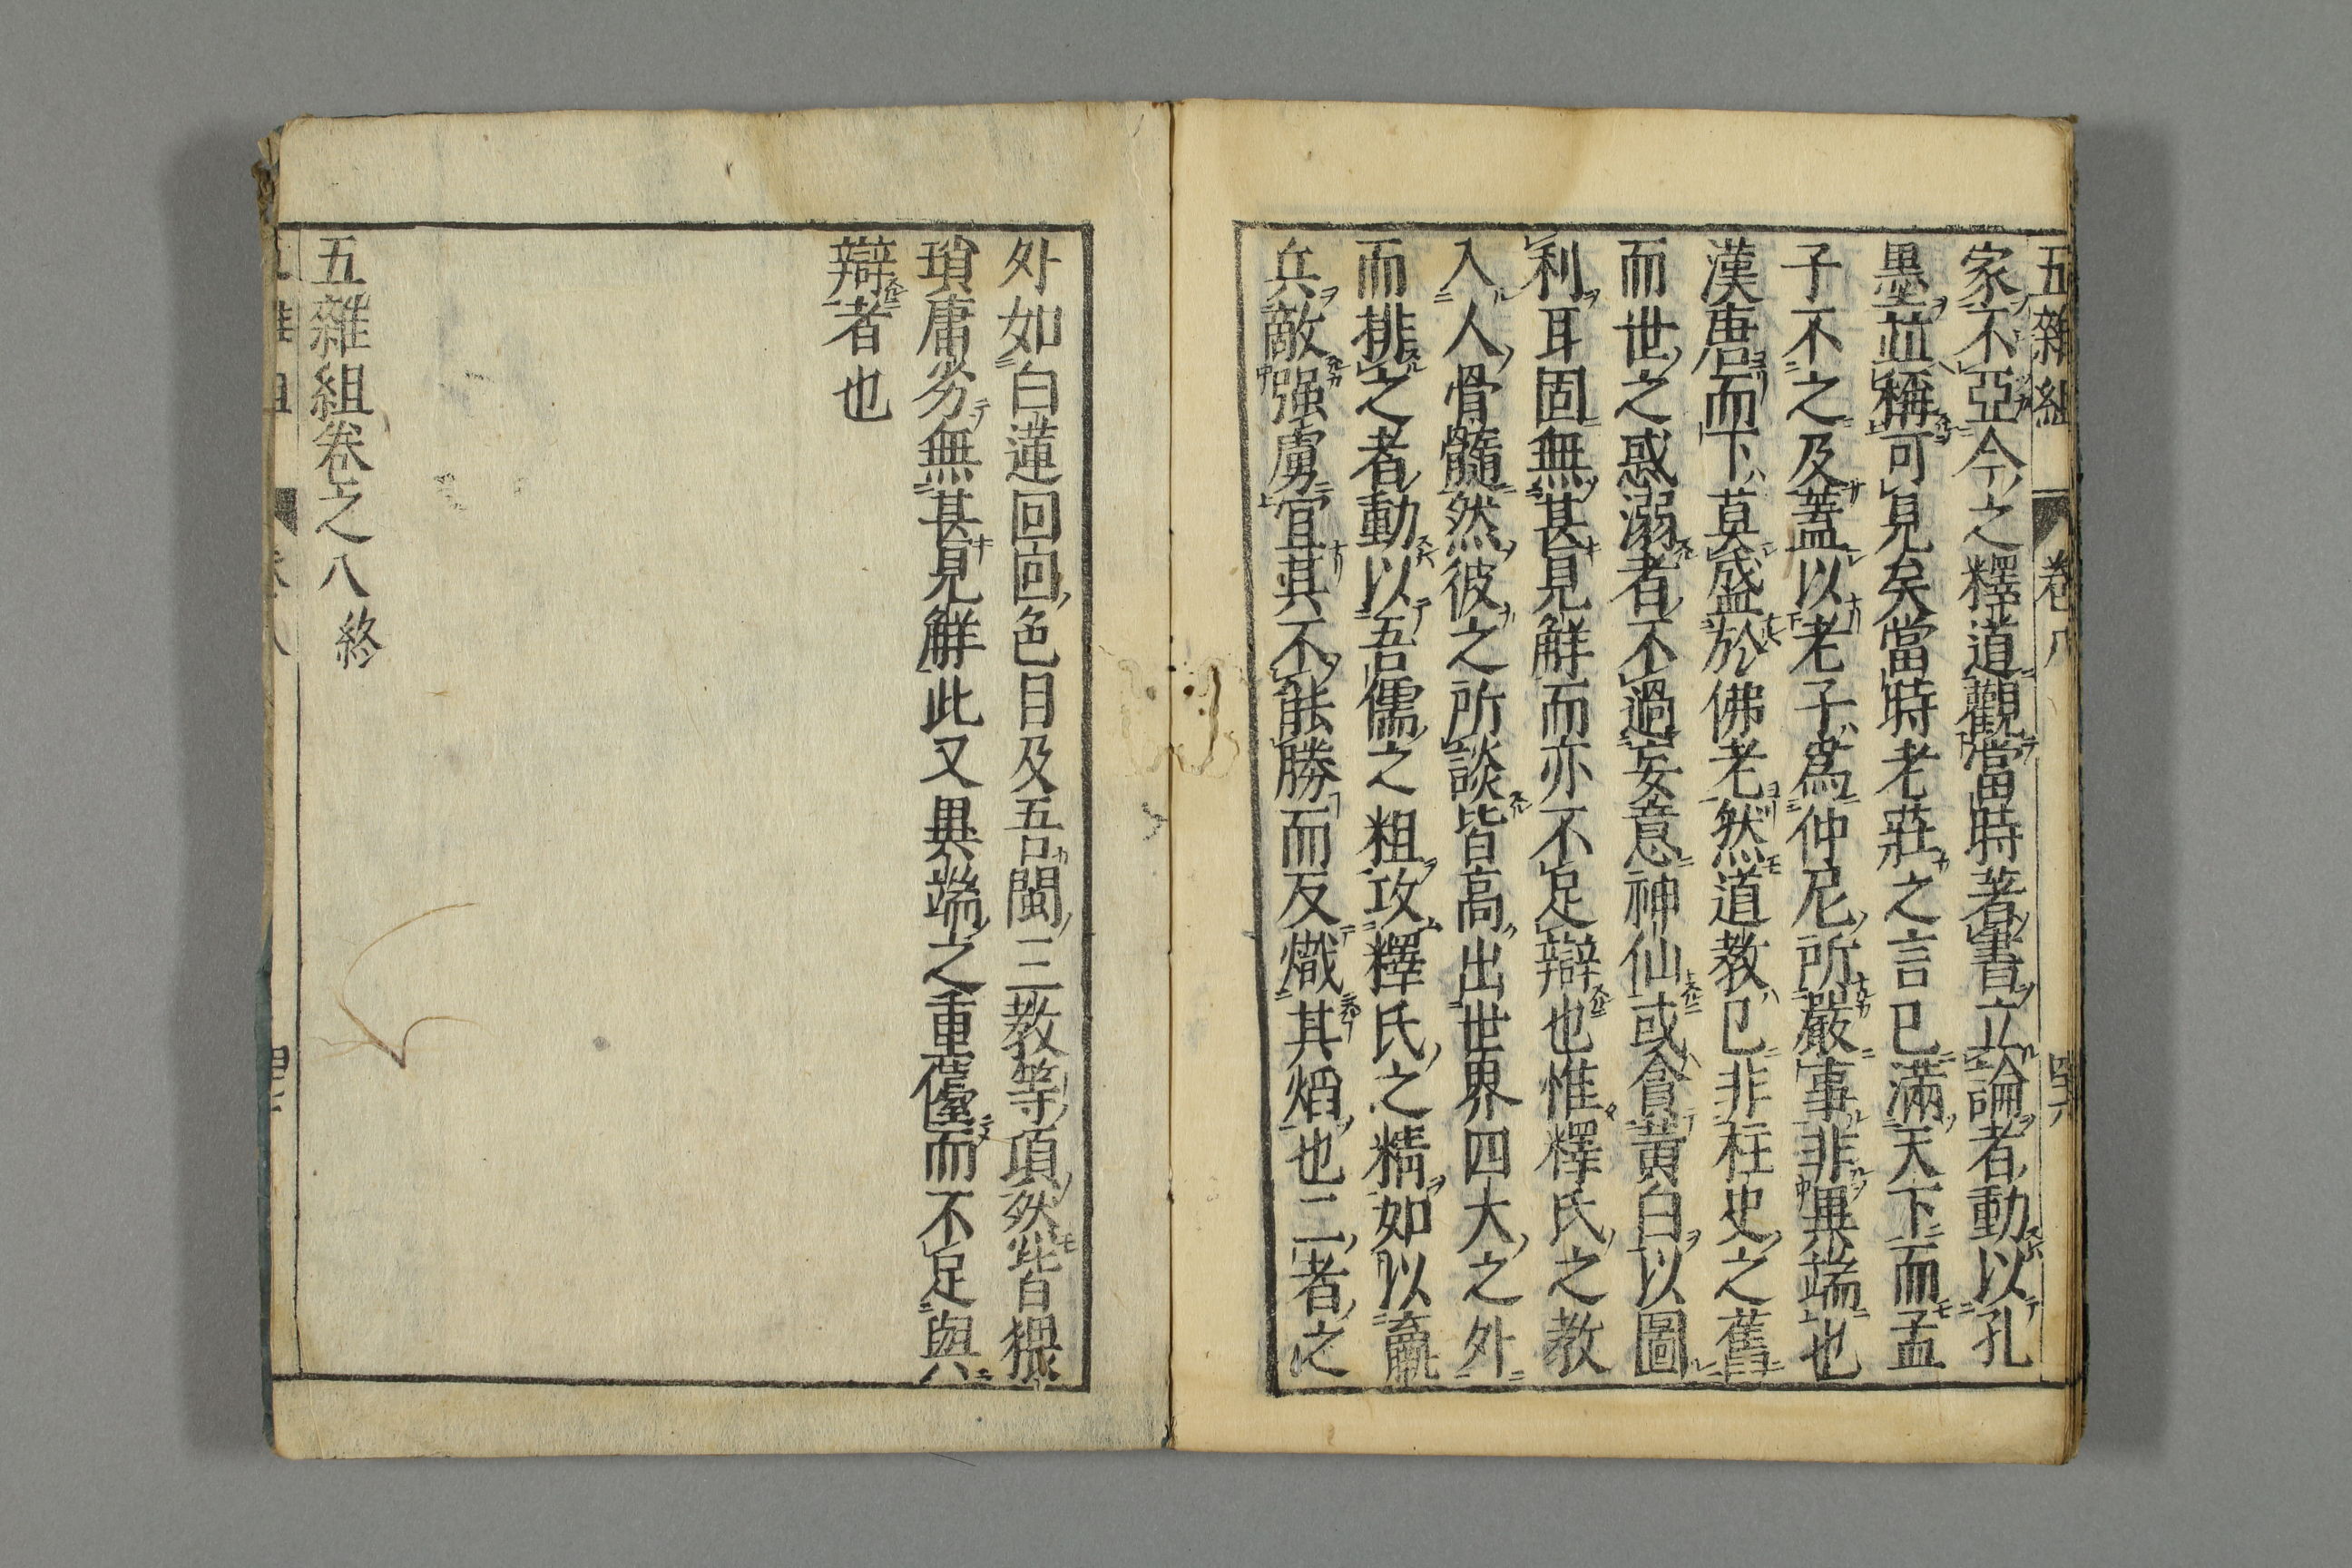 五雜組 卷八
家不亞今之釋道觀當時著書立論者動以孔
墨並稱可見矣當時老莊之言已滿天下而孟
子不之及蓋以老子爲仲尼所嚴事非異端也
漢唐而下莫盛於佛老然道教已非柱史之舊
而世之惑溺者不過妄意神仙或貪黃白以圖
利耳固無甚見解而亦不足辯也惟釋氏之教
入人骨髓然彼之所談皆高出世界四大之外
而排之者動以吾儒之粗攻釋氏之精如以羸
兵敵强虜宜其不能勝而反熾其焰也二者之
外如白蓮回回色目及吾閩三教等項然皆猥
瑣庸劣無甚見解此又異端之重儓而不足與
辯者也
五雜組卷之八終